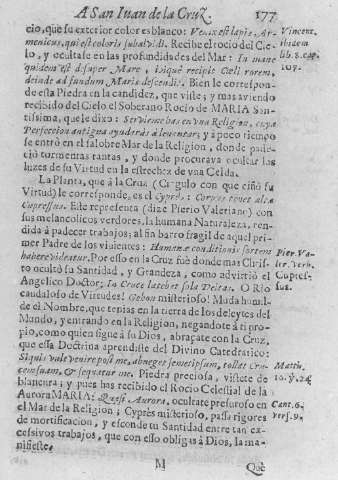 A San Iuan de la Cruz. 177
cio, que su exterior color es blanco: Venix est lapis Ar-
menicus, qui est coloris subalvidi. Recibe el rocio del Cie-
lo, y ocultase en las profundidades del Mar: In mane
quidem est de super Mare, Idque recipit Cœli rorem,
deinde ad fundum Maris descendit. Bien le correspon-
de esta Piedra en la candidez, que viste; y mas aviendo
recibido del Cielo el Soberano Rocio de MARIA San-
tissima, que le dixo: Serviràme has en una Religion, cuya
Perfeccion antigua ayudaràs à levantar; y à poco tiempo
se entrò en el salobre Mar de la Religion, donde pade-
ciò tormentas tantas, y donde procurava ocultar las
luzes de su Virtud en la estrechez de una Celda.
La Planta, que à la Cruz (Cingulo con que ciñò su
Virtud) le corresponde, es el Cyprès: Corpus tenet alta
Cupressus. Este representa (dize Pierio Valeriano) con
sus melancolicos verdores, la humana Naturaleza, ren-
dida à padecer trabajos; al fin barro fragil de aquel pri-
mer Padre de los vivientes: Humanæ conditionis sortem
habere videatur. Por esso en la Cruz fuè donde mas Chris-
to ocultò su Santidad, y Grandeza, como advirtiò el
Angelico Doctor: In Cruce latebat sola Deitas. O Rio
caudaloso de Virtudes! Gehon misterioso! Muda humil-
de el Nombre, que tenias en la tierra de los deleytes del
Mundo, y entrando en la Religion, negandote à ti pro-
pio, como quien sigue à su Dios, abraçate con la Cruz,
que essa Doctrina aprendiste del Divino Catedratico:
Si quis vult venire post me, abneget semetipsum, tollat Cru-
cem suam, & sequatur me. Piedra preciosa, vistete de
blancura; y pues has recibido el Rocio Celestial de la
Aurora MARIA: Quasi Aurora, ocultate presuroso en
el Mar de la Religion; Cyprès misterioso, passa rigores
de mortificacion, y esconde tu Santidad entre tan ex-
cessivos trabajos, que con esso obligas à Dios, la ma-
nifieste.
M Què
Vincent.
ibidem
lib. 8. cap.
107.
Pier Va-
ler. verb.
Cupres-
sus.
Matth.
16. ỹ. 24.
Cant. 6.
vers. 9.